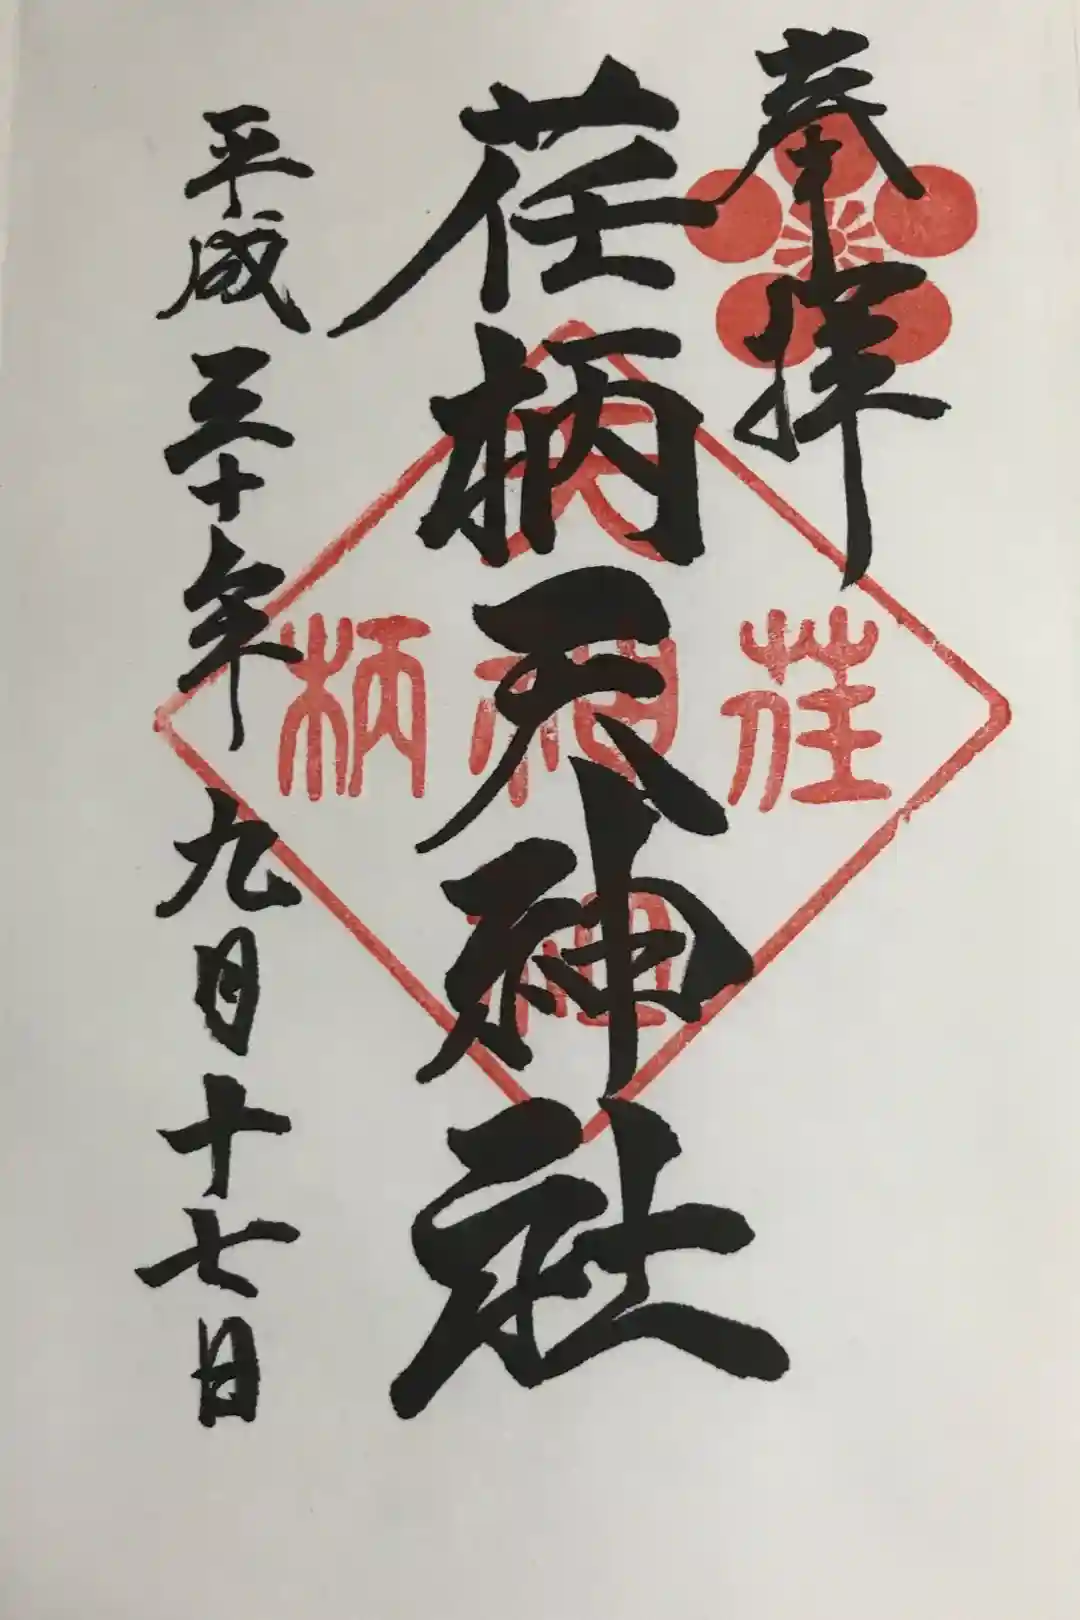 奉拝
荏柄天神社
平成三十年九月十七日
天
荏
神
柄
社